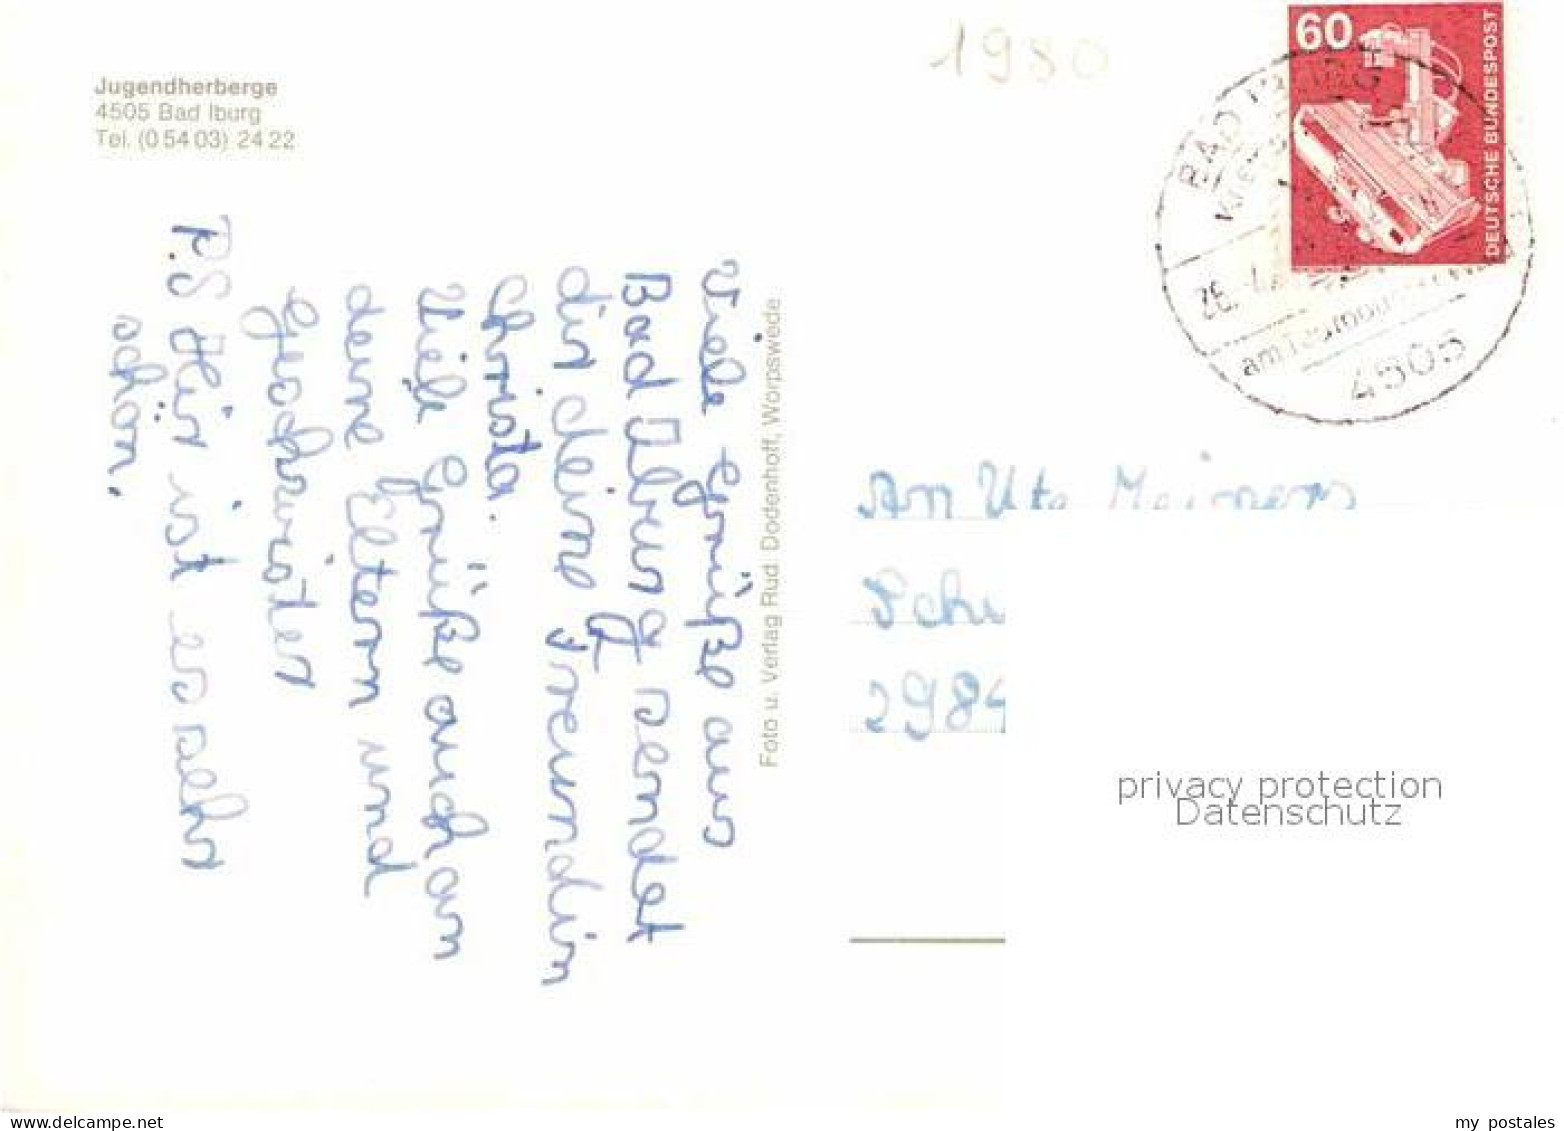 Jugendherberge
4505 Bad Iburg
Tel. (0 54 03) 24 22
Viele Grüße aus
Bad Iburg sendet
dir deine Freundin
Christa.
Viele Grüße auch an
deine Eltern und
Geschwister
P.S Hir ist es sehr
schön.
Foto u. Verlag Rud. Dodenhoff, Worpswede
1980
60
DEUTSCHE BUNDESPOST
BAD
26.
am Teutoburger Wald
4505
An Ute Meiners
Sch
2984
privacy protection
Datenschutz
delcampe.net
my_postales